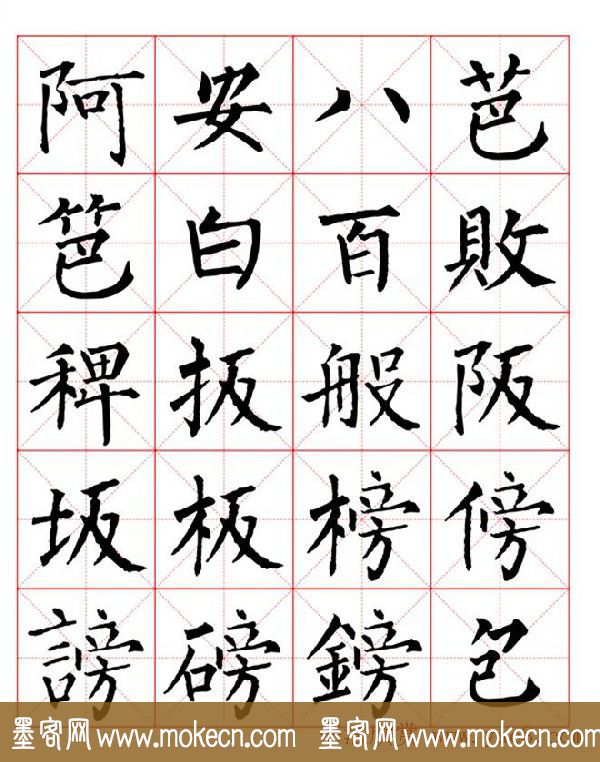 阿安八芭
笆白百敗
稗扳般阪
坂板榜傍
謗磅鎊包
墨客网 www.mokecn.com 墨客网 www.mokecn.com